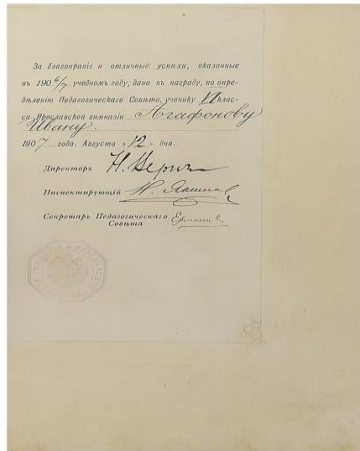 За благонравіе и отличные успѣхи, оказанные
въ 1906/7 учебномъ году, дана въ награду, по опре-
дѣленію Педагогическаго Совѣта, ученику VI клас-
са Ярославской гимназіи Агафонову
Ивану.
1907 года. Августа «12» дня.
Директоръ Н.
Инспектирующій Н.
Секретарь Педагогическаго
Совѣта